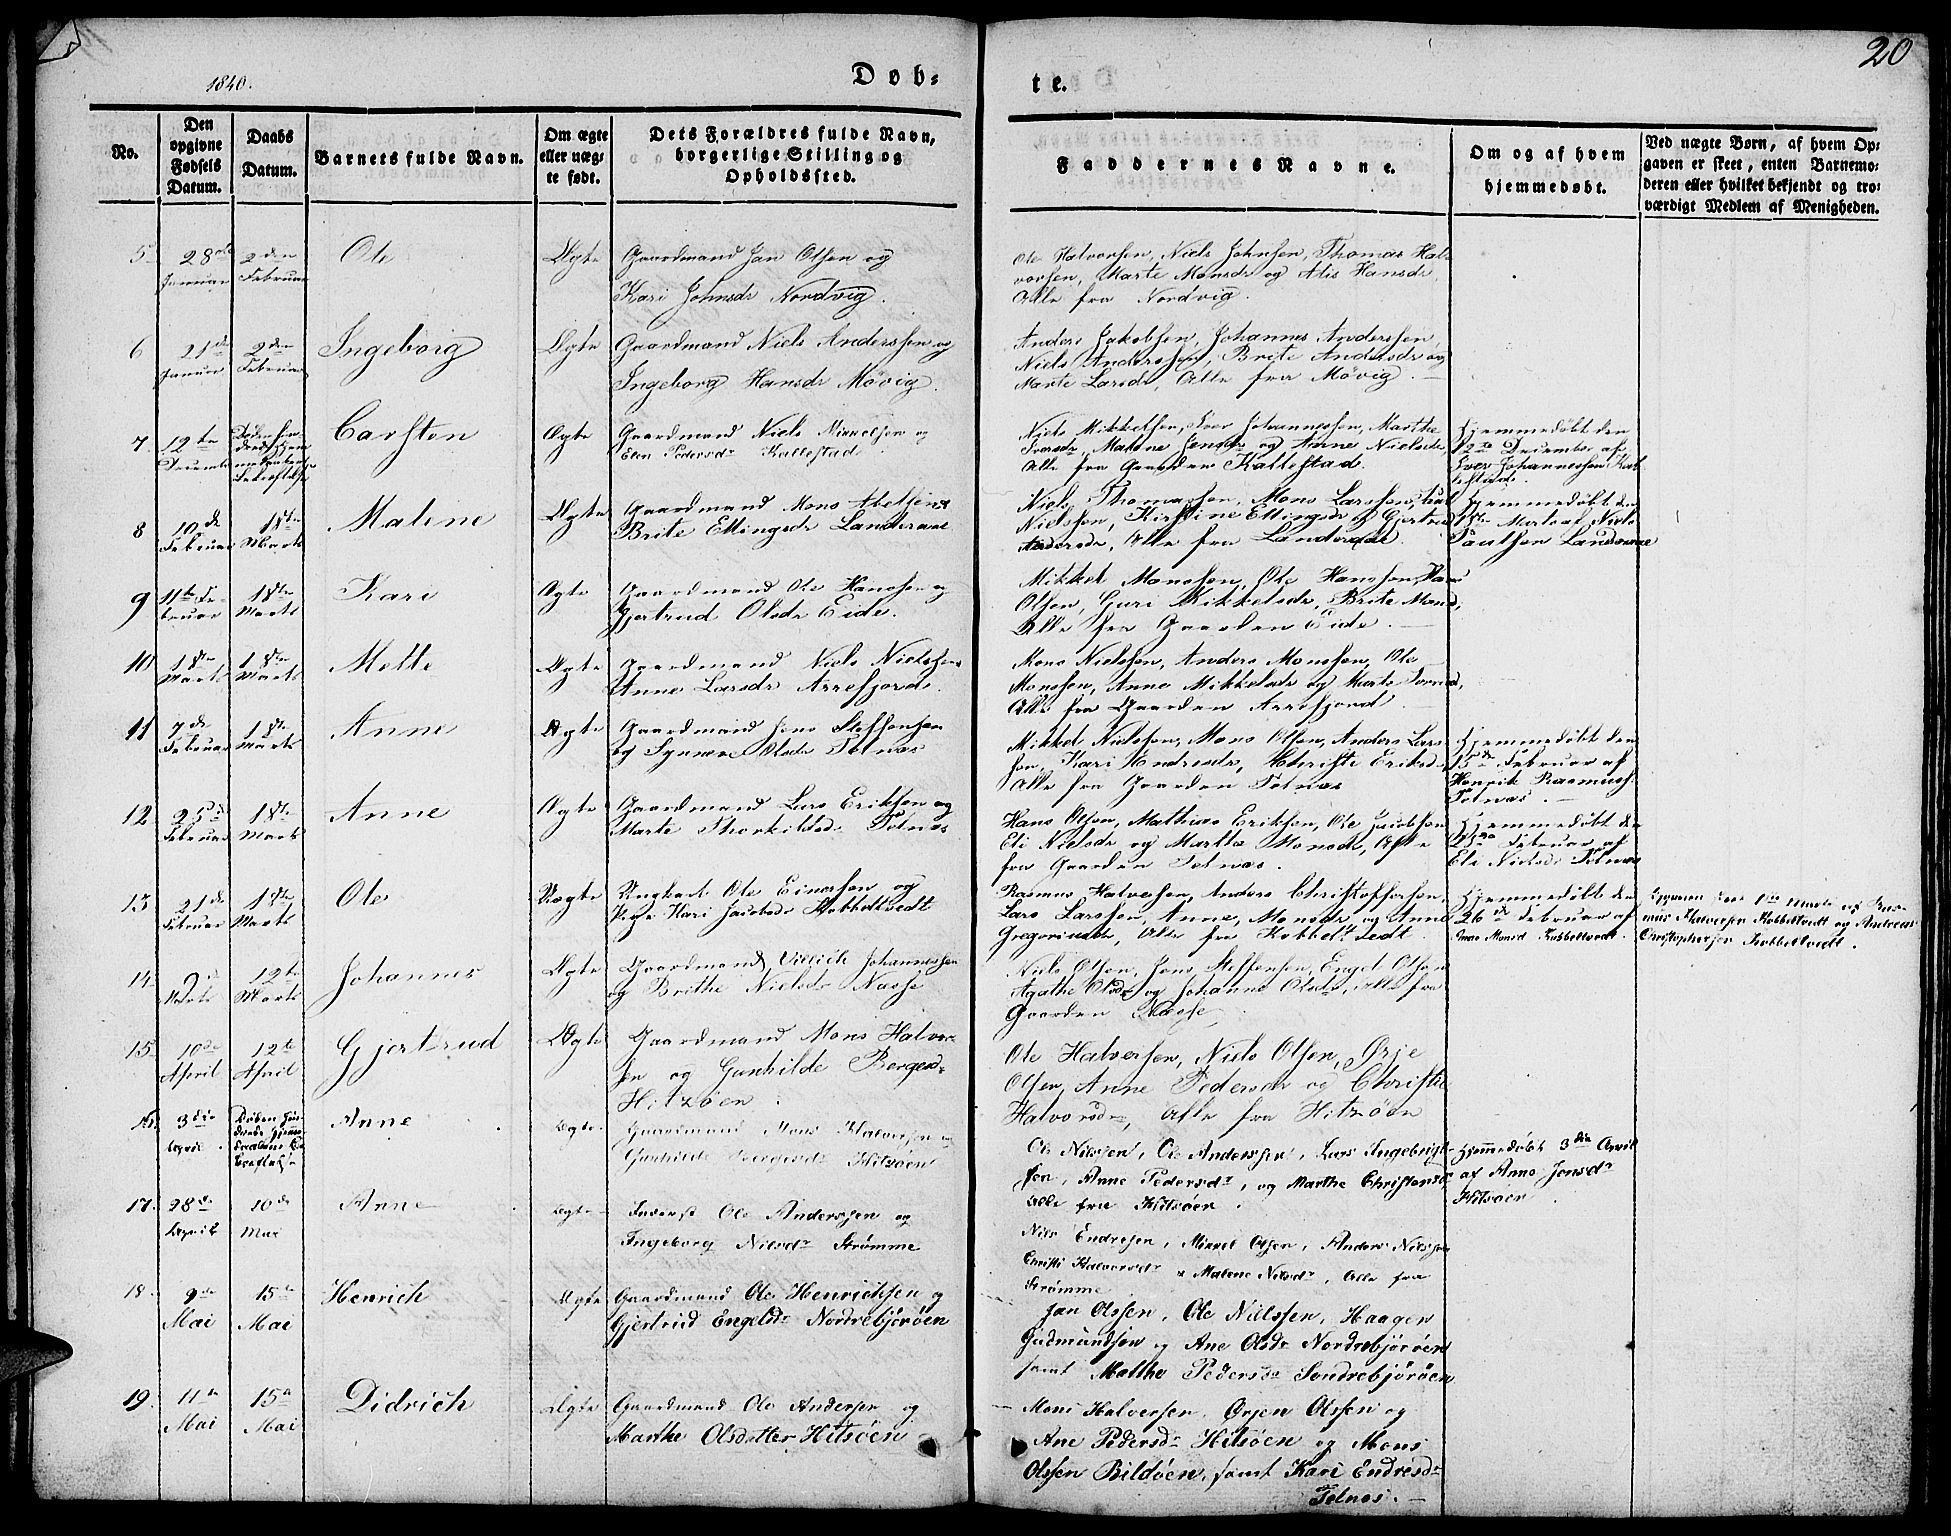 1840.
Døb=
te.
20
No.
Den opgivne Fødsels Datum.
Daabs Datum.
Barnets fulde Navn.
Om ægte eller uægte født.
Dets Forældres fulde Navn, borgerlige Stilling og Opholdssted.
Faddernes Navne.
Om og af hvem hjemmedøbt.
Ved uægte Børn, af hvem Op=
gaven er skeet, enten Barnemo=
deren eller hvilket bekjendt og tro=
værdigt Medlem af Menigheden.
5 28 Januar 2den Februar Ole Ægte Gaardmand Jan Olsen og
Kari Johnsdr Nordvig.
Ole Halvorsen, Niels Johnsen, Thomas Hal=
vorsen, Marte Monsdr og Alis Hansdr,
Alle fra Nordvig.
6 21de Januar 2den Februar Ingeborg Ægte Gaardmand Niels Anderssen og
Ingeborg Hansdr Møvig.
Anders Jakobsen, Johannes Anderssen,
Niels Anderssen, Brite Andersdr og
Marte Larsdr, Alle fra Møvig.
7 12te December Carsten Ægte Gaardmand Niels Mikkelsen og
Elen Pedersdr Kallestad
Niels Mikkelsen, Iver Johannessen, Marthe
Iversdr, Malene Jensdr og Anne Nielsdr,
Alle fra Gaarden Kallestad.
Hjemmedøbt den
12te December af
Iver Johannessen Kal
lestad.
8 10de Februar 1ste Marts Malene Ægte Gaardmand Mons Abelsen &
Brite Ellingsdr Landeraae
Niels Thomassen, Mons Larssen,
Nielssen, Kirstine Ellingsdr og Gjertrud
Andersdr, Alle fra Landeraae.
Hjemmedøbt den
1ste Marts af Niels
Paulsen Landeraae
9 11te Februar 1ste Marts Kari Ægte Gaardmand Ole Hanssen og
Gjertrud Olsdr Eide.
Mikkel Monssen, Ole Hanssen, Hans
Olsen, Guri Mikkelsdr, Brite Monsd,
Alle fra Gaarden Eide.
10 1ste Marts 1ste Marts Mette Ægte Gaardmand Niels Nielssen
Anne Larsdr Arrefjord.
Mons Nielssen, Anders Monssen, Ole
Monssen, Anne Mikkelsdr og Marte Iversd,
Alle fra Gaarden Arrefjord
11 7de Februar 1ste Marts Anne Ægte Gaardmand Jens Steffensen
og Synneve Olsdr Tolnæs
Mikkel Nielssen, Mons Olsen, Anders Lars
sen, Kari Andresdr, Christi Eriksd,
Alle fra Gaarden Tolnæs
Hjemmedøbt den
15de Februar af
Henrik Rasmuss
Tolnæs.
12 25de Februar 1ste Marts Anne Ægte Gaardmand Lars Eriksen og
Marte Thorkildsd Tolnæs
Hans Olsen, Mathias Eriksen, Ole Jacobsen
Eli Nielsdr og Marthe Monsdr, Alle
fra Gaarden Tolnæs.
Hjemmedøbt den
25de Februar af
Eli Nielsdr Tolnæs
13 21de Februar 1ste Marts Ole Uægte Ungkarl Ole Einersen og
Pige Kari Jacobsdr Kobbeltvedt
Rasmus Halversen, Anders Christoffersen,
Lars Larssen, Anne Monsdr og Anne
Gregoriusdr, Alle fra Kobbeltvedt
Hjemmedøbt den
26de Februar af
Monsd Kobbeltvedt.
1ste Marts af Ras=
mus Halversen Kobbeltvedt og Andreas
Christophersen Kobbeltvedt.
14 9de Marts 12te Marts Johannes Ægte Gaardmand Villich Johannessen
og Brithe Nielsdr Næsse
Niels Olsen, Jens Steffensen, Engel Olsen
Agathe Olsdr og Johanne Olsdr, Alle fra
Gaarden Næsse
15 10de April 12te April Gjertrud Ægte Gaardmand Mons Halver=
sen og Gunhilde Bergesd=
Hitzøen.
Ole Halversen, Niels Olsen, Ørje
Olsen, Anne Pedersdr og Christi
Halvorsdr, Alle fra Hitzøen
3die April Anne Ægte Gaardmand Mons Halversen og
Gunhilde Bergesdr Hitsøen
Ole Nilssen, Ole Anderssen, Lars Ingebrigt=
sen, Anne Pedersdr, og Marthe Christensd
Alle fra Hitsøen.
Hjemmedøbt 3die April
af Anne Jonsdr
Hitsøen
17. 28de April 10de Mai Anne Ægte Inderst Ole Anderssen og
Ingeborg Nilsdr Strømme
Nils Endresen, Mikkel Olsen, Anders Nilssen
Christi Halversdr & Malene Nilsdr, Alle fra
Strømme
18. 9de Mai 15de Mai Henrich Ægte Gaardmand Ole Henrichsen og
Gjertrud Engelsdr Nordrebjørøen
Jan Olssen, Ole Nielssen, Haagen
Gudmundsen og Ane Olsdr Nordrebjørøen
samt Malthe Pedersdr Søndrebjørøen
19. 11te Mai 15de Mai Didrich Ægte Gaardmand Ole Andersen og
Marthe Olsdatter Hitsøen
Mons Halversen, Ørjen Olssen og
Ane Pedersdr Hitsøen og Mons
Olssen Bildøen, samt Kari Endresdr
Tolnæs.